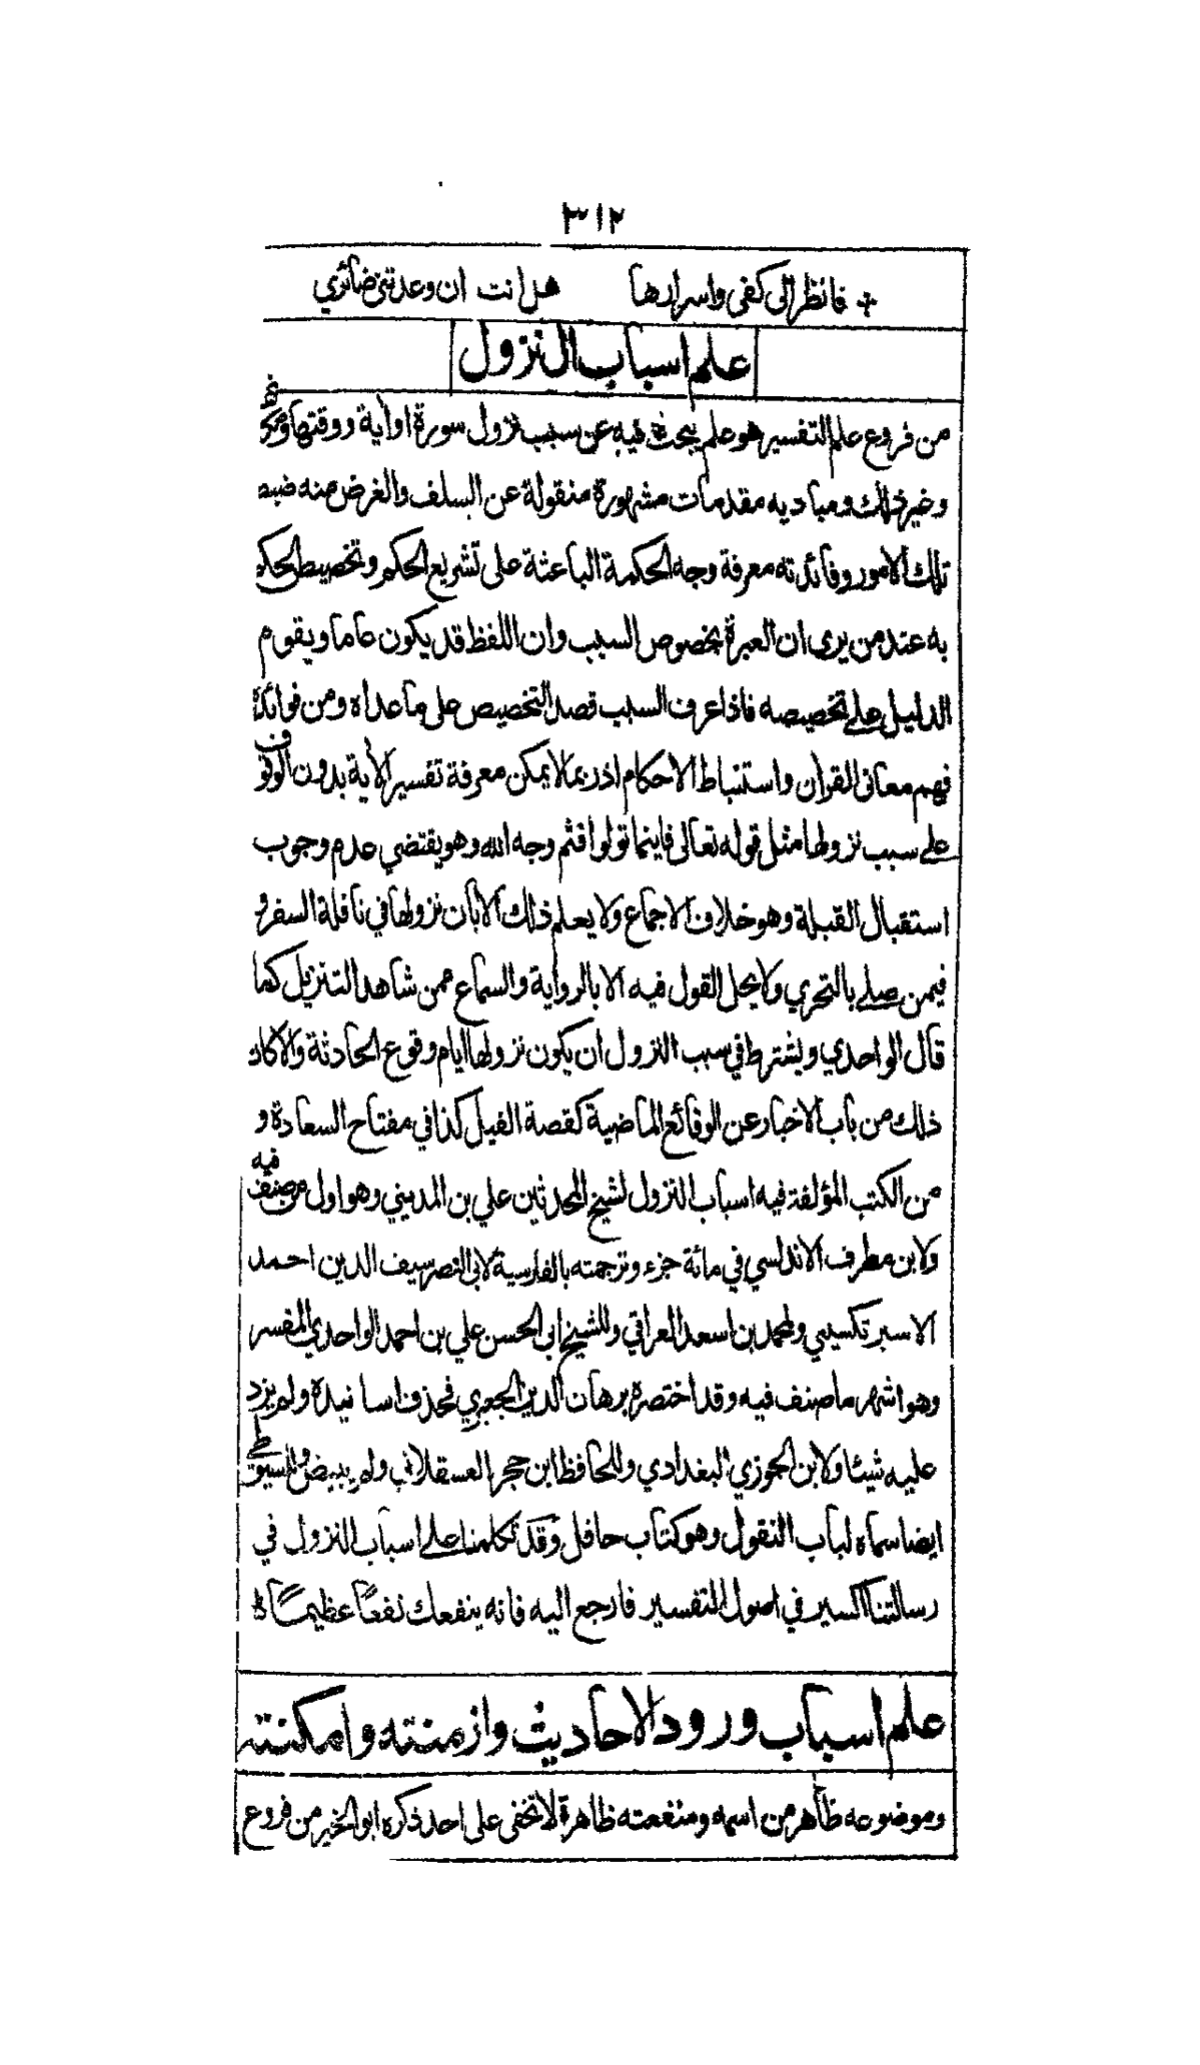 ٣١٢
فانظر الى كفى واسرارها هل انت ان وعدتنى ضائري
علم اسباب النزول
من فروع علم التفسير هو علم يبحث فيه عن سبب نزول سورة او اٰية ووقتها ومكانها
وغير ذلك ومباديه مقدمات مشهورة منقولة عن السلف والغرض منه ضبط
تلك الامور وفائدته معرفة وجه الحكمة الباعثة على تشريع الحكم وتخصيص الحكم
به عند من يرى ان العبرة بخصوص السبب وان اللفظ قد يكون عاما ويقوم
الدليل على تخصيصه فاذا عرف السبب قصد التخصيص على ما عداه ومن فوائدة
فهم معانى القرآن واستنباط الاحكام اذ ربما لا يمكن معرفة تفسير الاٰية بدون الوقوف
على سبب نزولها مثل قوله تعالى فاينما تولوا فثم وجه الله وهو يقتضي عدم وجوب
استقبال القبلة وهو خلاف الاجماع ولا يعلم ذلك الا بان نزولها في نافلة السفر و
فيمن صلى بالتحري ولا يحل القول فيه الا بالرواية والسماع ممن شاهد التنزيل كما
قال الواحدي ويشترط في سبب النزول ان يكون نزولها ايام وقوع الحادثة والا كان
ذلك من باب الاخبار عن الوقائع الماضية كقصة الفيل كذا في مفتاح السعادة و
من الكتب المؤلفة فيه اسباب النزول لشيخ المحدثين علي بن المديني وهو اول من صنف فيه
ولابن مطرف الاندلسي في مائة جزء وترجمته بالفارسية لابى النصر سيف الدين احمد
الاسبرتكسيي ولمحمد بن اسعد العراقي وللشيخ ابى الحسن علي بن احمد الواحدي المفسر
وهو اشهر ما صنف فيه وقد اختصره برهان الدين الجعبري فحذف اسانيدة ولم يزد
عليه شيئا ولابن الجوزي البغدادي وللحافظ ابن حجر العسقلاني ولم يبيض وللسيوطي
ايضا سماه لباب النقول وهو كتاب حافل وقد تكلمنا على اسباب النزول في
رسالتنا اكسير في اصول التفسير فارجع اليه فانه ينفعك نفعًا عظيمًا
علم اسباب ورود الاحاديث وازمنته وامكنته
وموضوعه ظاهر من اسمه ومنفعته ظاهرة لا تخفى على احد ذكره ابو الخير من فروع